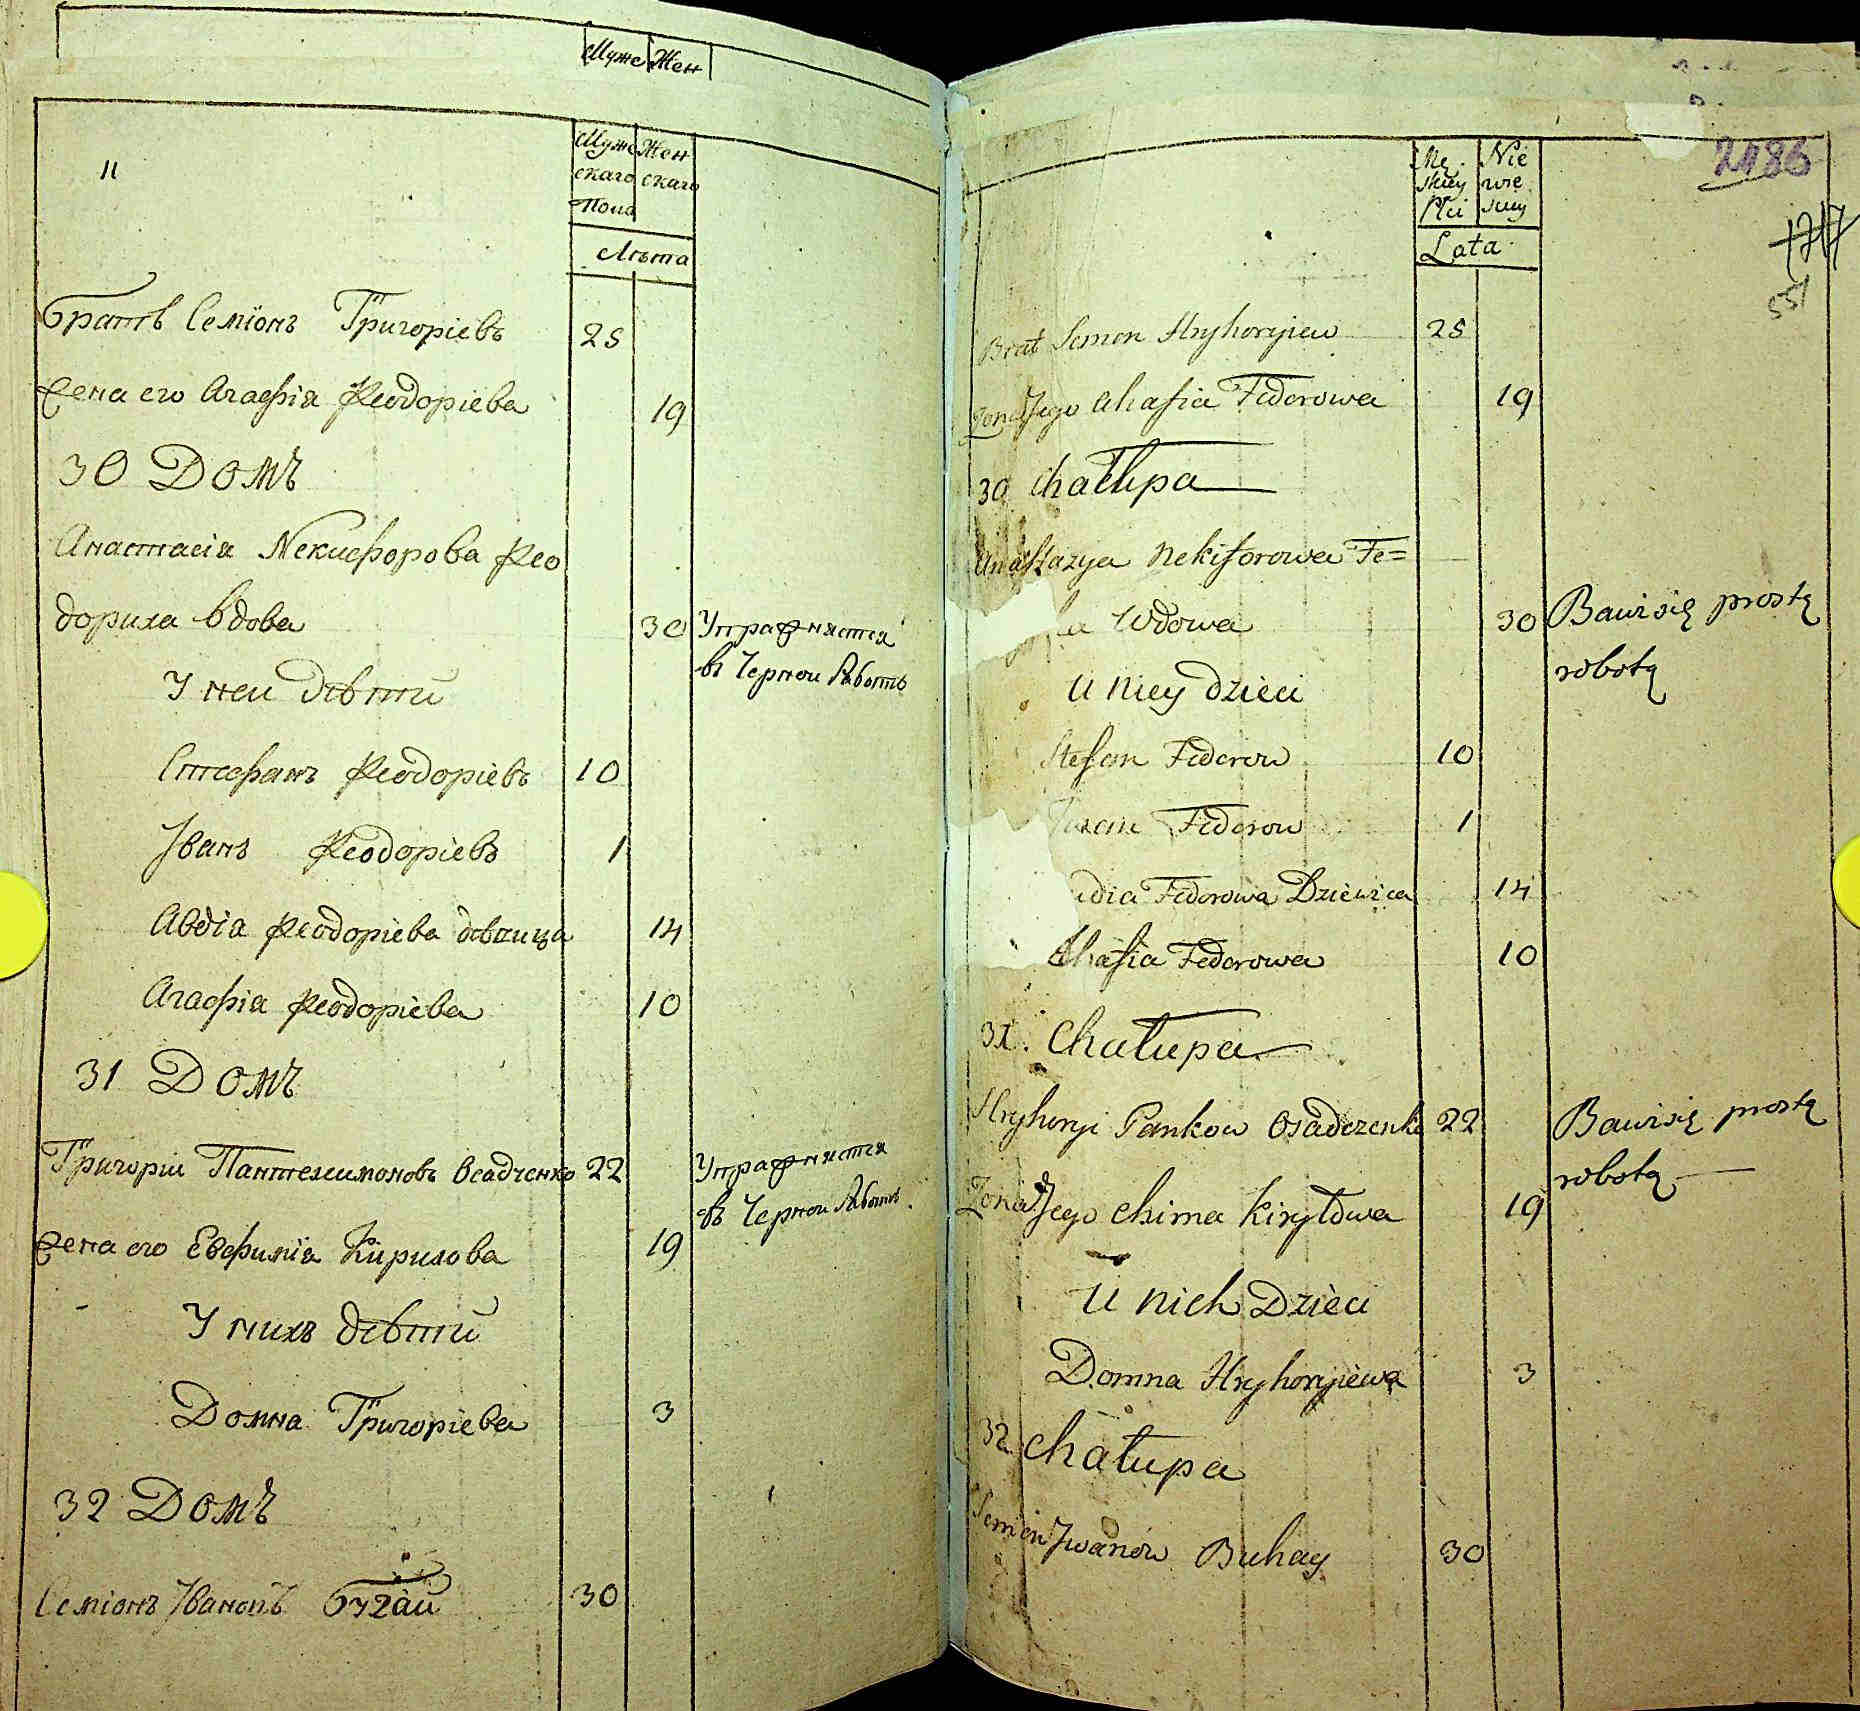 Муже Жен
11
Муже Жен
скаго скаго
Пола
Лѣта
братъ Семіонъ Григоріевъ 25
жена его Агафія Ѳеодоріева 19
30 Домъ
Анастасія Некифорова Ѳео
дориха вдова 30 Упражняется
въ Черной Работѣ
У ней дѣти
Стефанъ Ѳеодоріевъ 10
Іванъ Ѳеодоріевъ 1
Авдіа Ѳеодоріева дѣвица 14
Агафіа Ѳеодоріева 10
31 Домъ
Григорій Пантелимоновъ Осадченко 22 Упражняется
въ Черной Работѣ
жена его Евфимїа Кирилова 19
У нихъ дѣти
Домна Григоріева 3
32 Домъ
Семіонъ Івановъ бугай 30
2486
Mę Nie
skiey wie
Płci skiey
Lata
1717
551
Brat Semen Hryhoryiew 25
Zona Jego Ahafia Fedorowa 19
30 Chałupa
Anastazya Nekiforowa Fe=
a Wdowa 30 Bawi się prostą
robotą
U niey dzieci
Stefan Fedorow 10
Iwan Fedorow 1
udia Fedorowa Dziewica 14
Ahafia Fedorowa 10
31. Chałupa
Hryhoryi Pankow Osadczenko 22 Bawi się prostą
robotą
Zona Jego Chima Kiryłowa 19
U nich Dzieci
Domna Hryhoryiewa 3
32 Chałupa
Semen Jwanow Buhay 30